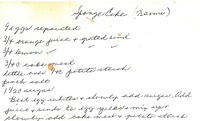 Sponge Cake (Naomi)
9 eggs separated
3/4 orange juice & grated rind
3/4 lemon ✓
3/4 C cake meal
little over 1/4 C potato starch
pinch salt
1 1/2 C sugar
Beat egg whites & slowly add sugar. Add
juice & rind to egg yolks & mix egg
slowly add cake meal & potato starch